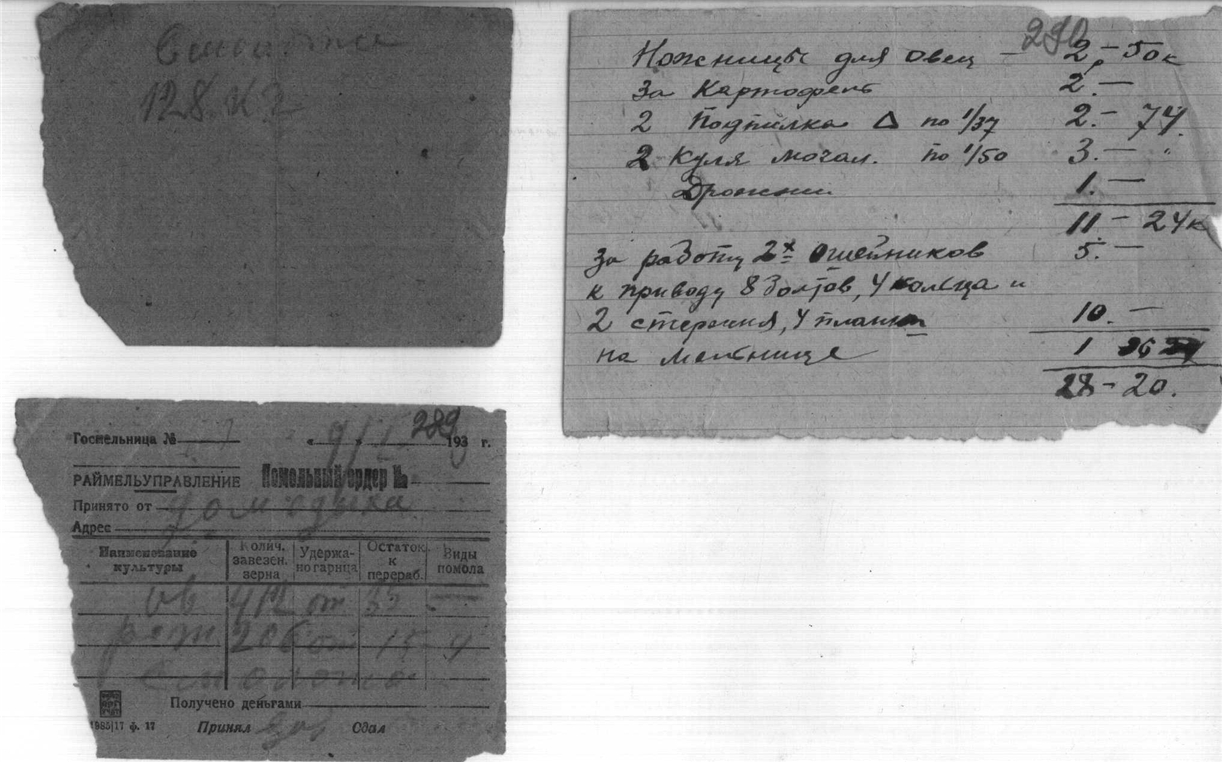 128 кг
290
Ножницы для овец — 2,- 50к
За Картофель 2.—
2 Подпилка Δ по 1/37 2.- 74.
2 Куля мочал. по 1/50 3.— "
Дрожжи 1.—
11 - 24к
За работу 2х ошейников 5.—
к приводу 8 болтов, 4 кольца и
2 стержня, 4 планки 10.—
на мельнице 1 96
28 - 20.
289
Госмельница №
9/I 193 г.
РАЙМЕЛЬУПРАВЛЕНИЕ Помольный ордер №
Принято от
Адрес
Наименование культуры Колич. завезен. зерна Удержано гарнца Остаток к перераб. Виды помола
ов 412 от 35 —
рож 206 от 15 - 4
Смолото
Получено деньгами
1985|17 ф. 17 Принял Сдал